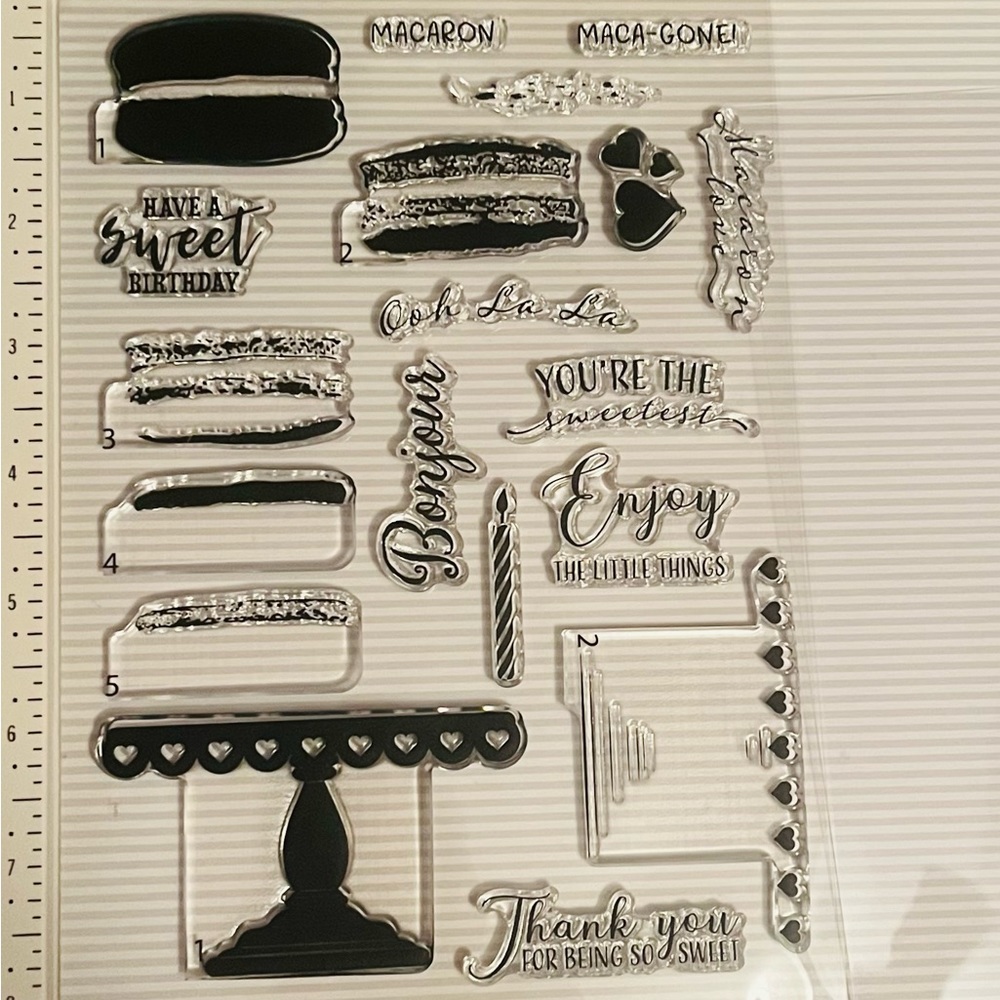 MACARON
MACA-GONE!
1
1
2
Macaron
love
HAVE A
sweet
BIRTHDAY
2
Ooh La La
3
YOU'RE THE
sweetest
Bonjour
3
4
Enjoy
THE LITTLE THINGS
4
5
2
5
6
7
1
Thank you
FOR BEING SO SWEET